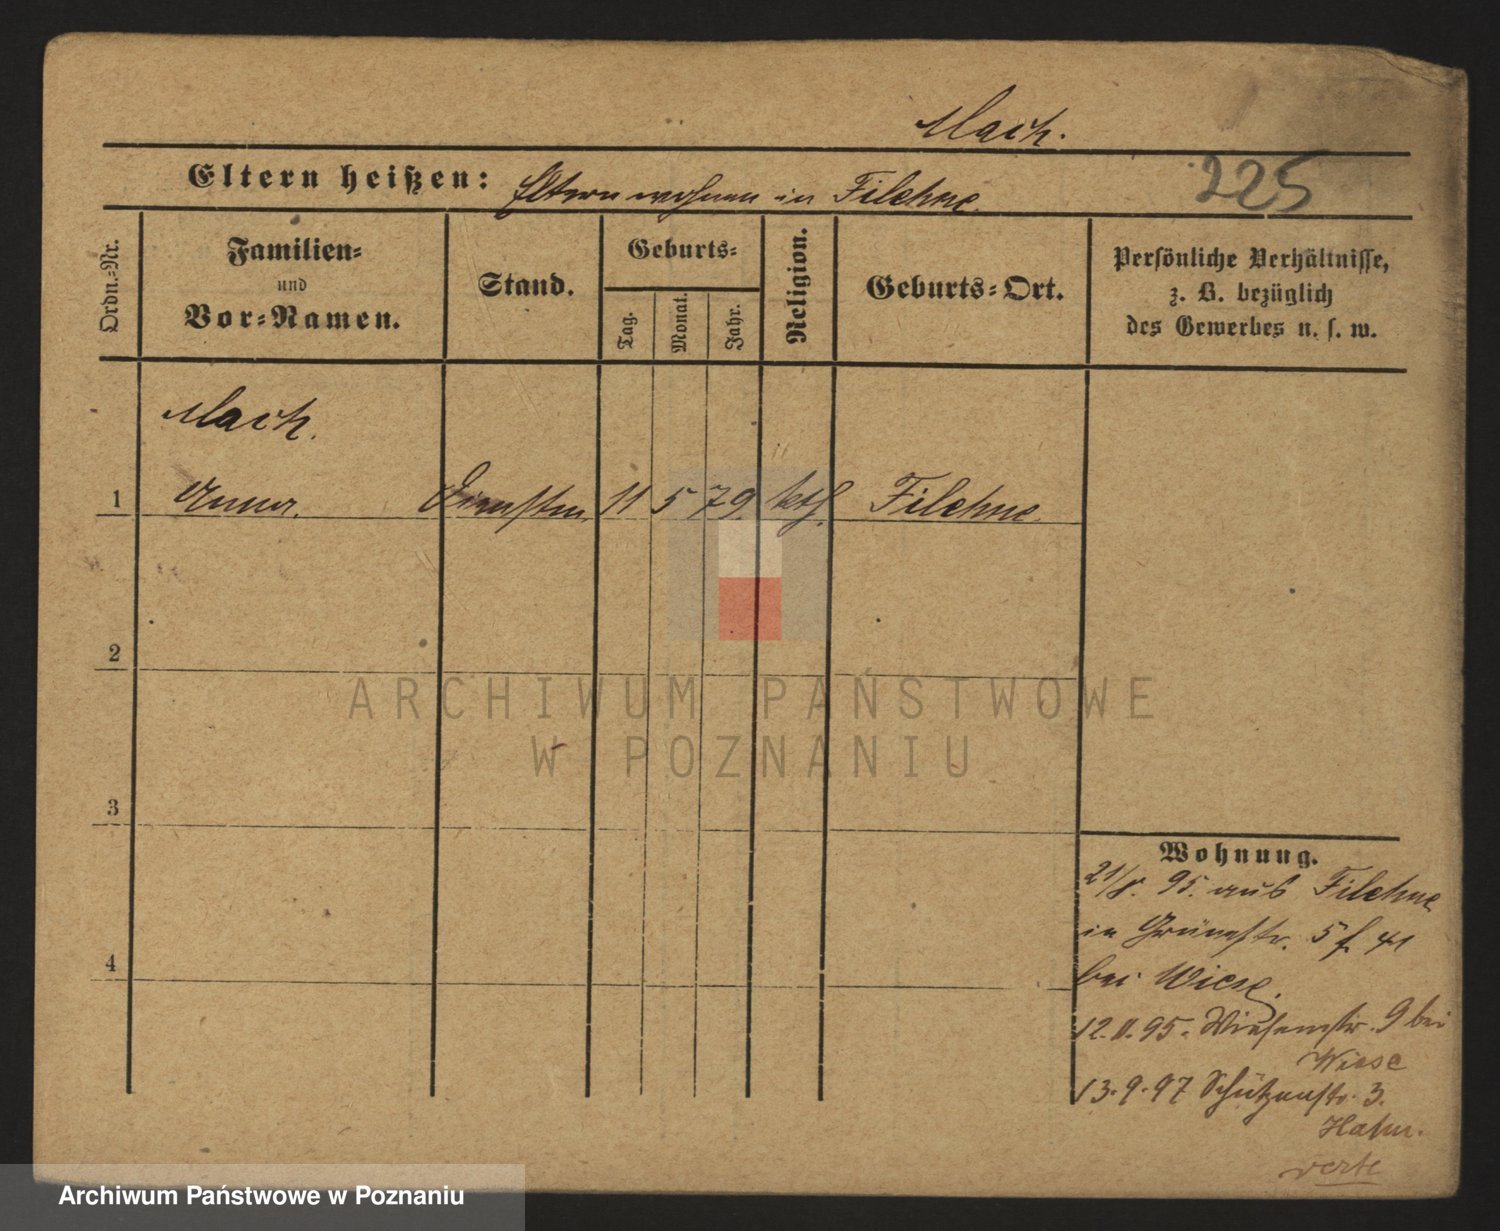 Mach.
225
Eltern heißen: Eltern wohnen in Filehne
Ordn.-Nr.
Familien-
und
Vor-Namen.
Stand.
Geburts-
Tag.
Monat.
Jahr.
Religion.
Geburts-Ort.
Persönliche Verhältnisse,
z. B. bezüglich
des Gewerbes u. s. w.
Mach.
1 Anna. 11 5 79. kth. Filehne
2
ARCHIWUM PAŃSTWOWE
W POZNANIU
3
4
Wohnung.
21/8. 95. aus Filehne
in Grünestr. 5 41
bei Wiese.
12.11.95. Wiesenstr. 9 bei
Wiese
13.9.97 Schützenstr. 3.
Hahn.
verte
Archiwum Państwowe w Poznaniu